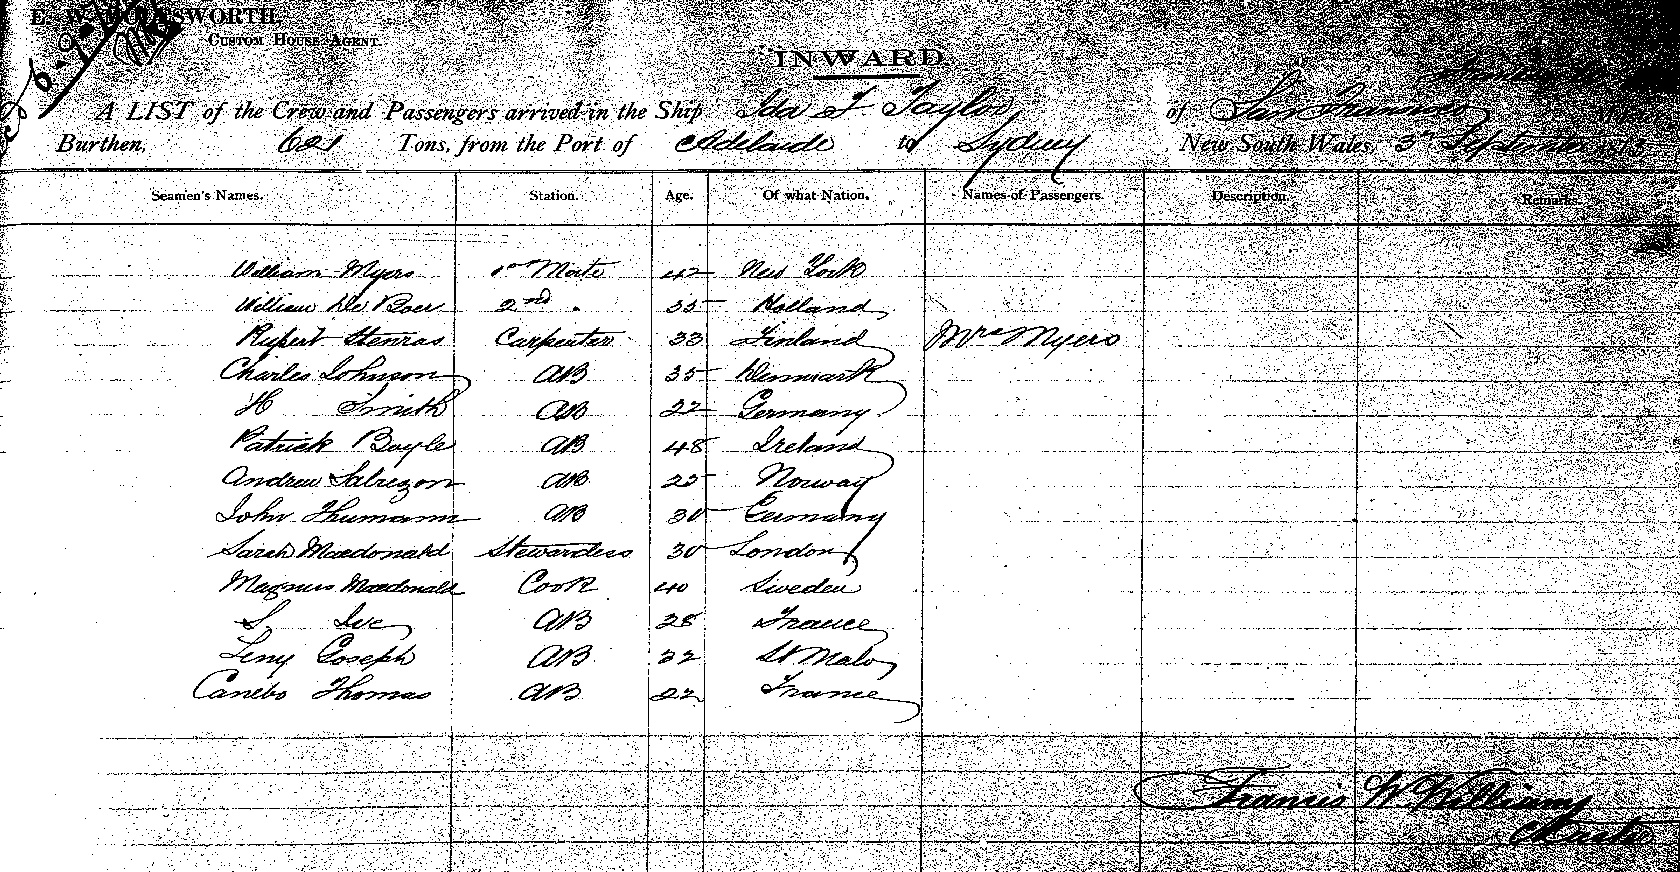 E. W. MOLESWORTH.
CUSTOM HOUSE AGENT.
INWARD
A LIST of the Crew and Passengers arrived in the Ship Ida F Taylor of San Francisco
Burthen, 621 Tons, from the Port of Adelaide to Sydney New South Wales, 3rd September
Seamen's Names. Station. Age. Of what Nation. Names of Passengers. Description. Remarks.
William Myers 1st Mate 42 New York
William De Boer 2nd " 35 Holland
Rupert Stenras Carpenter 33 Finland Mrs Myers
Charles Johnson AB 35 Denmark
H Smith AB 22 Germany
Patrick Boyle AB 48 Ireland
Andrew AB 25 Norway
John Thumann AB 30 Germany
Sarah Macdonald Stewardess 30 London
Magnus Macdonald Cook 40 Sweden
S Ive AB 28 France
Leny Goseph AB 22 St Malo
Canebo Thomas AB 22 France
Francis W Williams